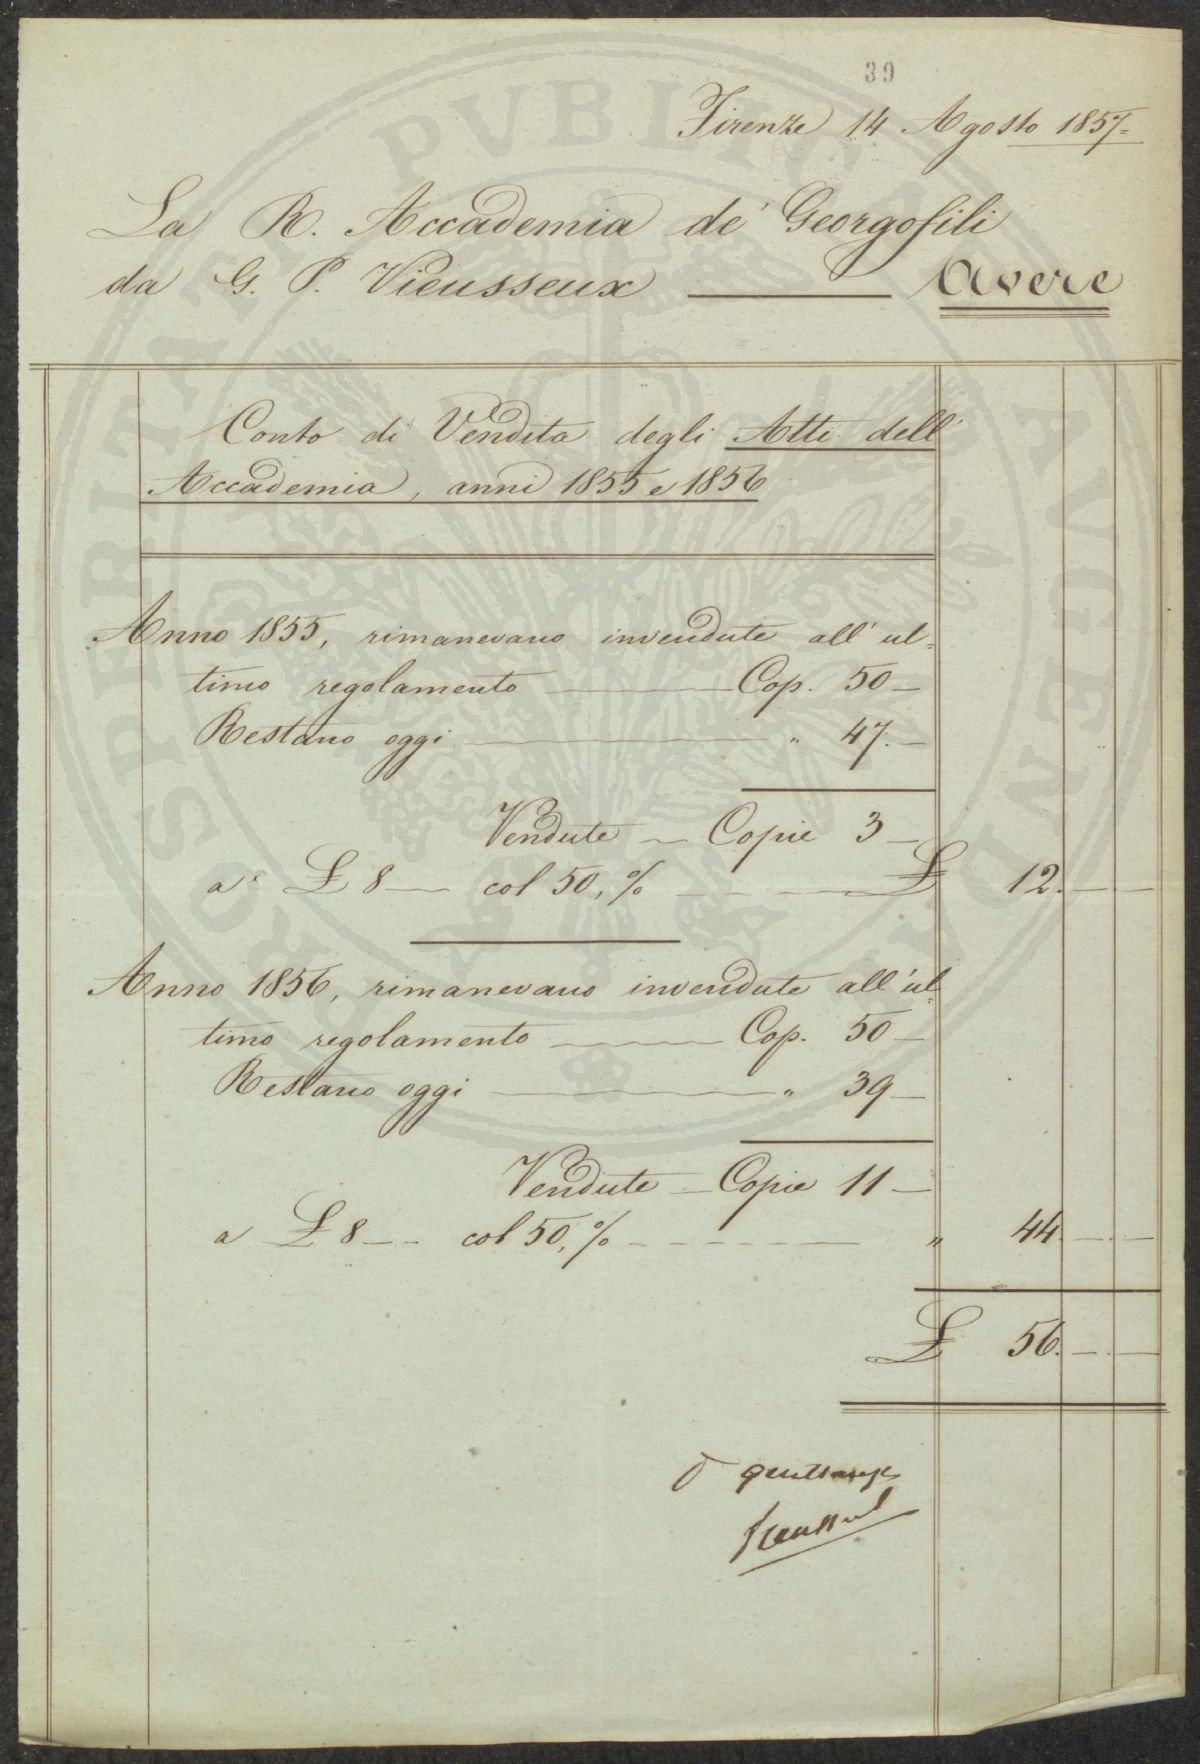 39
Firenze 14 Agosto 1857.
La R. Accademia de' Georgofili
da G. P. Vieusseux ——— Avere
Conto di Vendita degli Atti dell'
Accademia, anni 1855 e 1856
Anno 1855, rimanevano invendute all' ul-
timo regolamento ——— Cop. 50 —
Restano oggi ——— " 47. —
Vendute — Copie 3 —
a £ 8 — col 50, % — — £ 12. — —
Anno 1856, rimanevano invendute all' ul-
timo regolamento ——— Cop. 50 —
Restano oggi ——— " 39 —
Vendute — Copie 11 —
a £ 8 — - col 50, % - - - - — " 44. — . —
£ 56. — . —
Vieusseux
PROSPERITATI PVBLICAE AVGENDAE